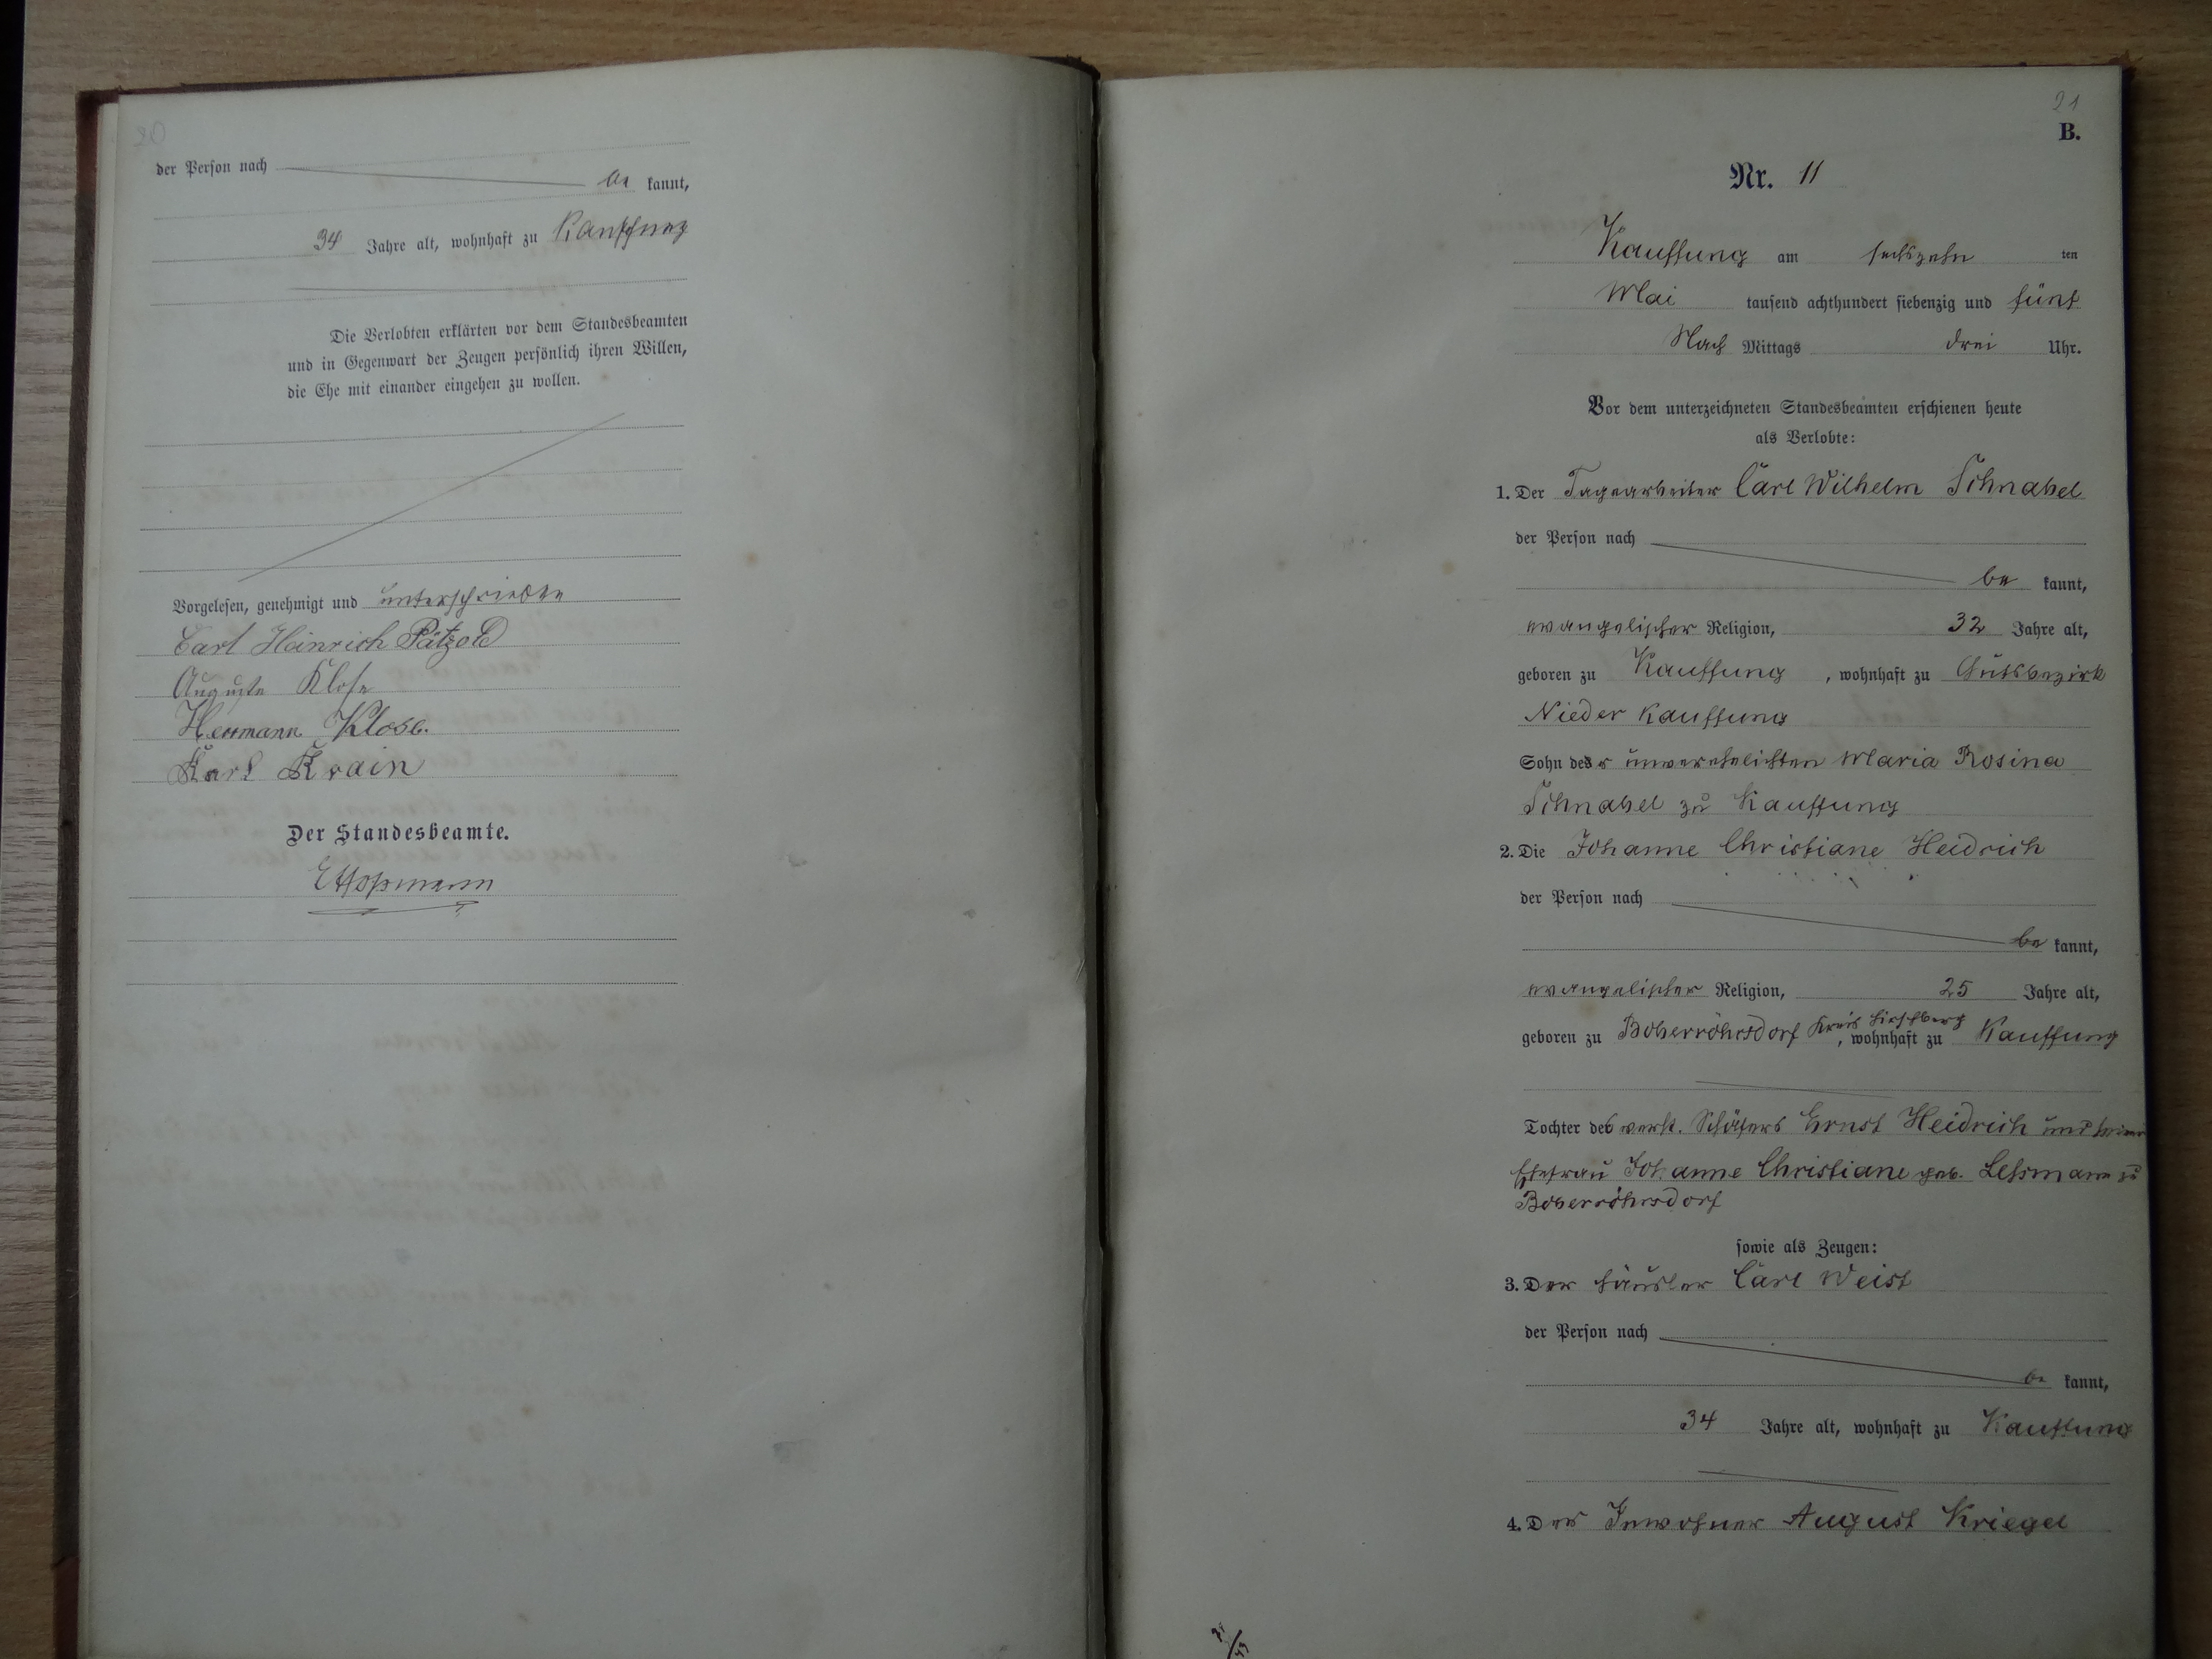 20
der Person nach
be kannt,
34 Jahre alt, wohnhaft zu Kauffung
Die Verlobten erklärten vor dem Standesbeamten
und in Gegenwart der Zeugen persönlich ihren Willen,
die Ehe mit einander eingehen zu wollen.
Vorgelesen, genehmigt und unterschrieben
Carl Heinrich Pätzold
Auguste Klose
Herrmann Klose.
Karl Krain
Der Standesbeamte.
21
B.
Nr. 11
Kauffung am sechszehn ten
Mai tausend achthundert siebenzig und fünf
Nach Mittags drei Uhr.
Vor dem unterzeichneten Standesbeamten erschienen heute
als Verlobte:
1. Der Tagearbeiter Carl Wilhelm Schnabel
der Person nach
be kannt,
evangelischer Religion, 32 Jahre alt,
geboren zu Kauffung, wohnhaft zu Gutsbezirk
Nieder Kauffung
Sohn der unverehelichten Maria Rosina
Schnabel zu Kauffung
2. Die Johanne Christiane Heidrich
der Person nach
be kannt,
evangelischer Religion, 25 Jahre alt,
geboren zu Boberröhrsdorf Kreis Hirschberg, wohnhaft zu Kauffung
Tochter des verst. Schäfers Ernst Heidrich und seiner
Ehefrau Johanne Christiane geb. Lessmann zu
Boberröhrsdorf
sowie als Zeugen:
3. Der Häusler Carl Weist
der Person nach
be kannt,
34 Jahre alt, wohnhaft zu Kauffung
4. Der Inwohner August Kriegel